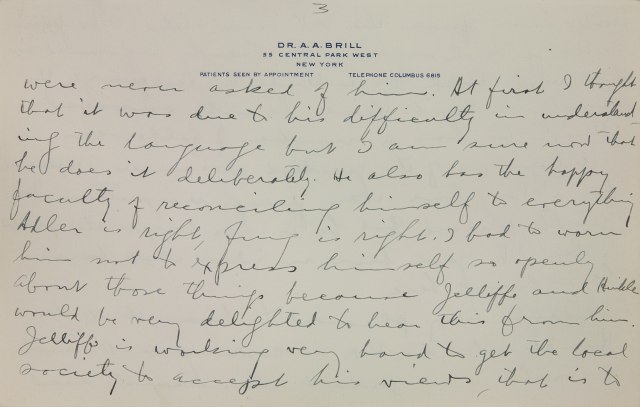 3
DR. A. A. BRILL
55 CENTRAL PARK WEST
NEW YORK
PATIENTS SEEN BY APPOINTMENT TELEPHONE COLUMBUS 6815
were never asked of him. At first I thought
that it was due to his difficulty in understand-
ing the language but I am sure now that
he does it deliberately. He also has the happy
faculty of reconciling himself to everything
Adler is right, Jung is right. I had to warn
him not to express himself so openly
about those things because Jelliffe and Hinkle
would be very delighted to hear this from him.
Jelliffe is working very hard to get the local
society to accept his views, that is to